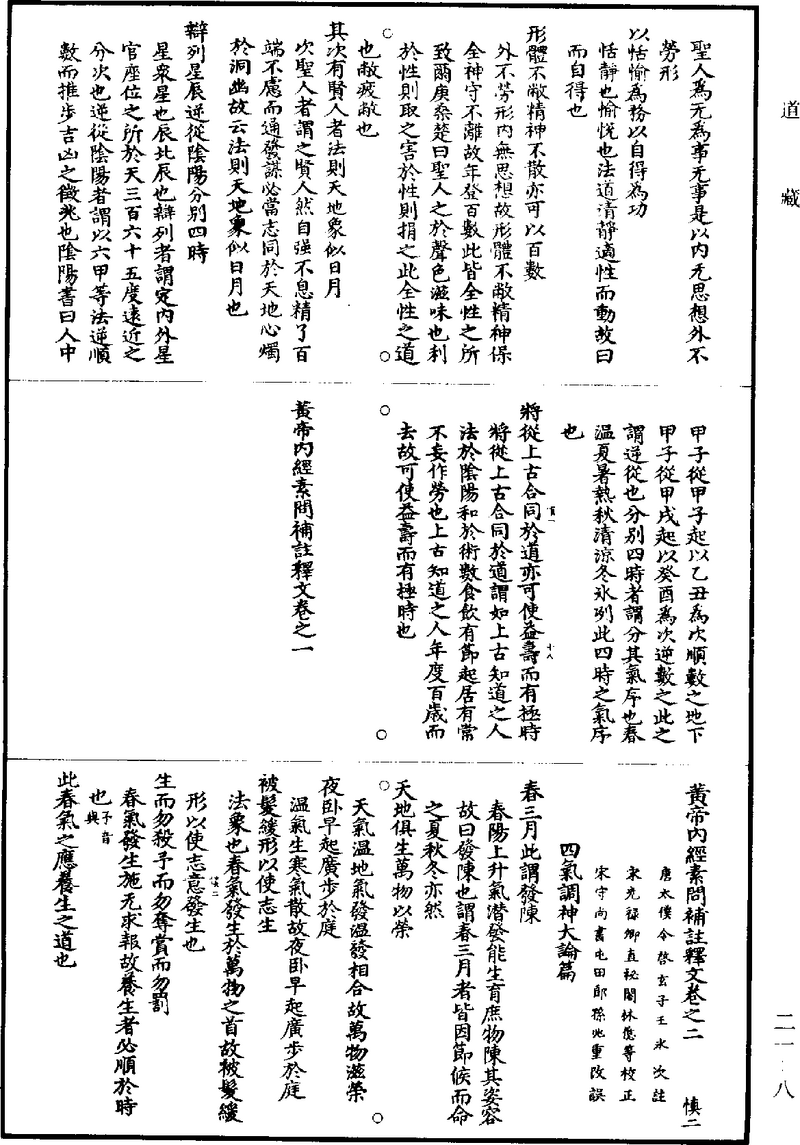 道藏
聖人為无為事无事是以內无思想外不
勞形
以恬愉為務以自得為功
恬靜也愉悅也法道清靜適性而動故曰
而自得也
形體不敝精神不散亦可以百數
外不勞形內無思想故形體不敝精神保
全神守不離故年登百數此皆全性之所
致爾庚桑楚曰聖人之於聲色滋味也利
於性則取之害於性則捐之此全性之道
也敝疲敝也
其次有賢人者法則天地象似日月
次聖人者謂之賢人然自强不息精了百
端不慮而通發謀必當志同於天地心燭
於洞幽故云法則天地象似日月也
辯列星辰逆從陰陽分別四時
星衆星也辰北辰也辯列者謂定內外星
官座位之所於天三百六十五度遠近之
分次也逆從陰陽者謂以六甲等法逆順
數而推步吉凶之徵兆也陰陽書曰人中
甲子從甲子起以乙丑為次順數之地下
甲子從甲戌起以癸酉為次逆數之此之
謂逆從也分別四時者謂分其氣序也春
温夏暑熱秋清涼冬氷冽此四時之氣序
也
將從上古合同於道亦可使益壽而有極時
將從上古合同於道謂如上古知道之人
法於陰陽和於術數食飲有節起居有常
不妄作勞也上古知道之人年度百歲而
去故可使益壽而有極時也
黃帝內經素問補註釋文卷之一
黃帝內經素問補註釋文卷之二 慎二
唐太僕令啓玄子王氷次註
宋光祿卿直秘閣林億等校正
宋守尚書屯田郎孫兆重改誤
四氣調神大論篇
春三月此謂發陳
春陽上升氣潛發能生育庶物陳其姿容
故曰發陳也謂春三月者皆因節候而命
之夏秋冬亦然
天地俱生萬物以榮
天氣温地氣發温發相合故萬物滋榮
夜卧早起廣步於庭
温氣生寒氣散故夜卧早起廣步於庭
被髮緩形以使志生
法象也春氣發生於萬物之首故被髮緩
形以使志意發生也
生而勿殺予而勿奪賞而勿罰
春氣發生施无求報故養生者必順於時
也予音與
此春氣之應養生之道也
二一·八